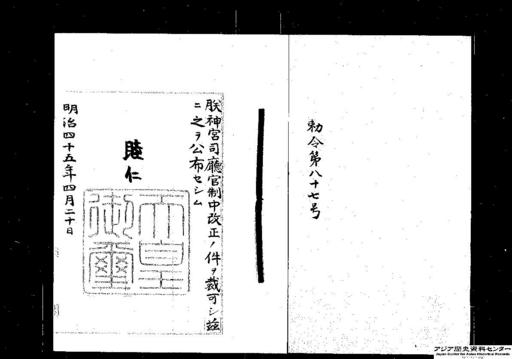 勅令第八十七号
朕神宮司廳官制中改正ノ件ヲ裁可シ茲
ニ之ヲ公布セシム
睦仁
天皇御璽
明治四十五年四月二十日
アジア歴史資料センター
Japan Center for Asian Historical Records